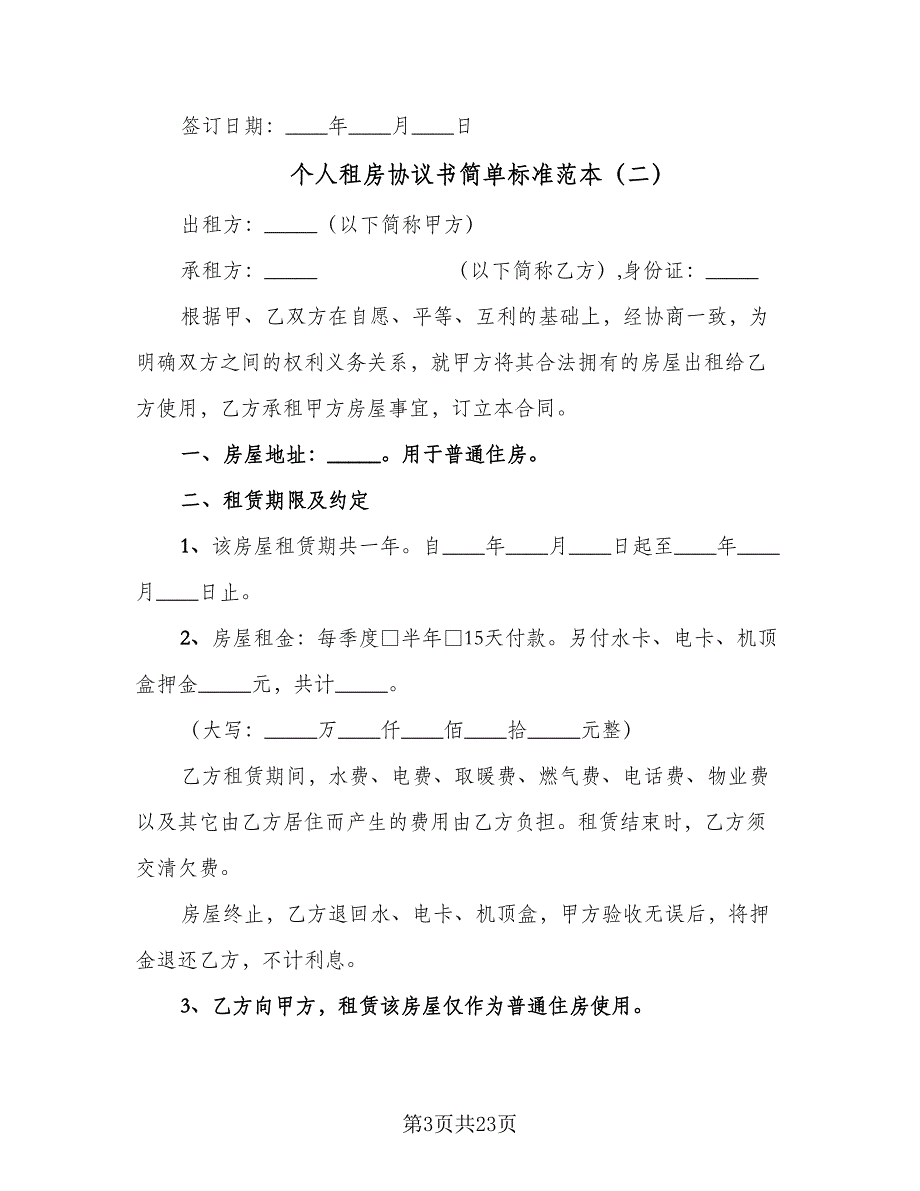 签订日期：____年____月____日
个人租房协议书简单标准范本（二）
出租方：_____（以下简称甲方）
承租方：_____ （以下简称乙方）,身份证：_____
根据甲、乙双方在自愿、平等、互利的基础上，经协商一致，为
明确双方之间的权利义务关系，就甲方将其合法拥有的房屋出租给乙
方使用，乙方承租甲方房屋事宜，订立本合同。
一、房屋地址：_____。用于普通住房。
二、租赁期限及约定
1、该房屋租赁期共一年。自____年____月____日起至____年____
月____日止。
2、房屋租金：每季度□半年□15天付款。另付水卡、电卡、机顶
盒押金_____元，共计_____。
（大写：_____万____仟____佰____拾_____元整）
乙方租赁期间，水费、电费、取暖费、燃气费、电话费、物业费
以及其它由乙方居住而产生的费用由乙方负担。租赁结束时，乙方须
交清欠费。
房屋终止，乙方退回水、电卡、机顶盒，甲方验收无误后，将押
金退还乙方，不计利息。
3、乙方向甲方，租赁该房屋仅作为普通住房使用。
第3页共23页